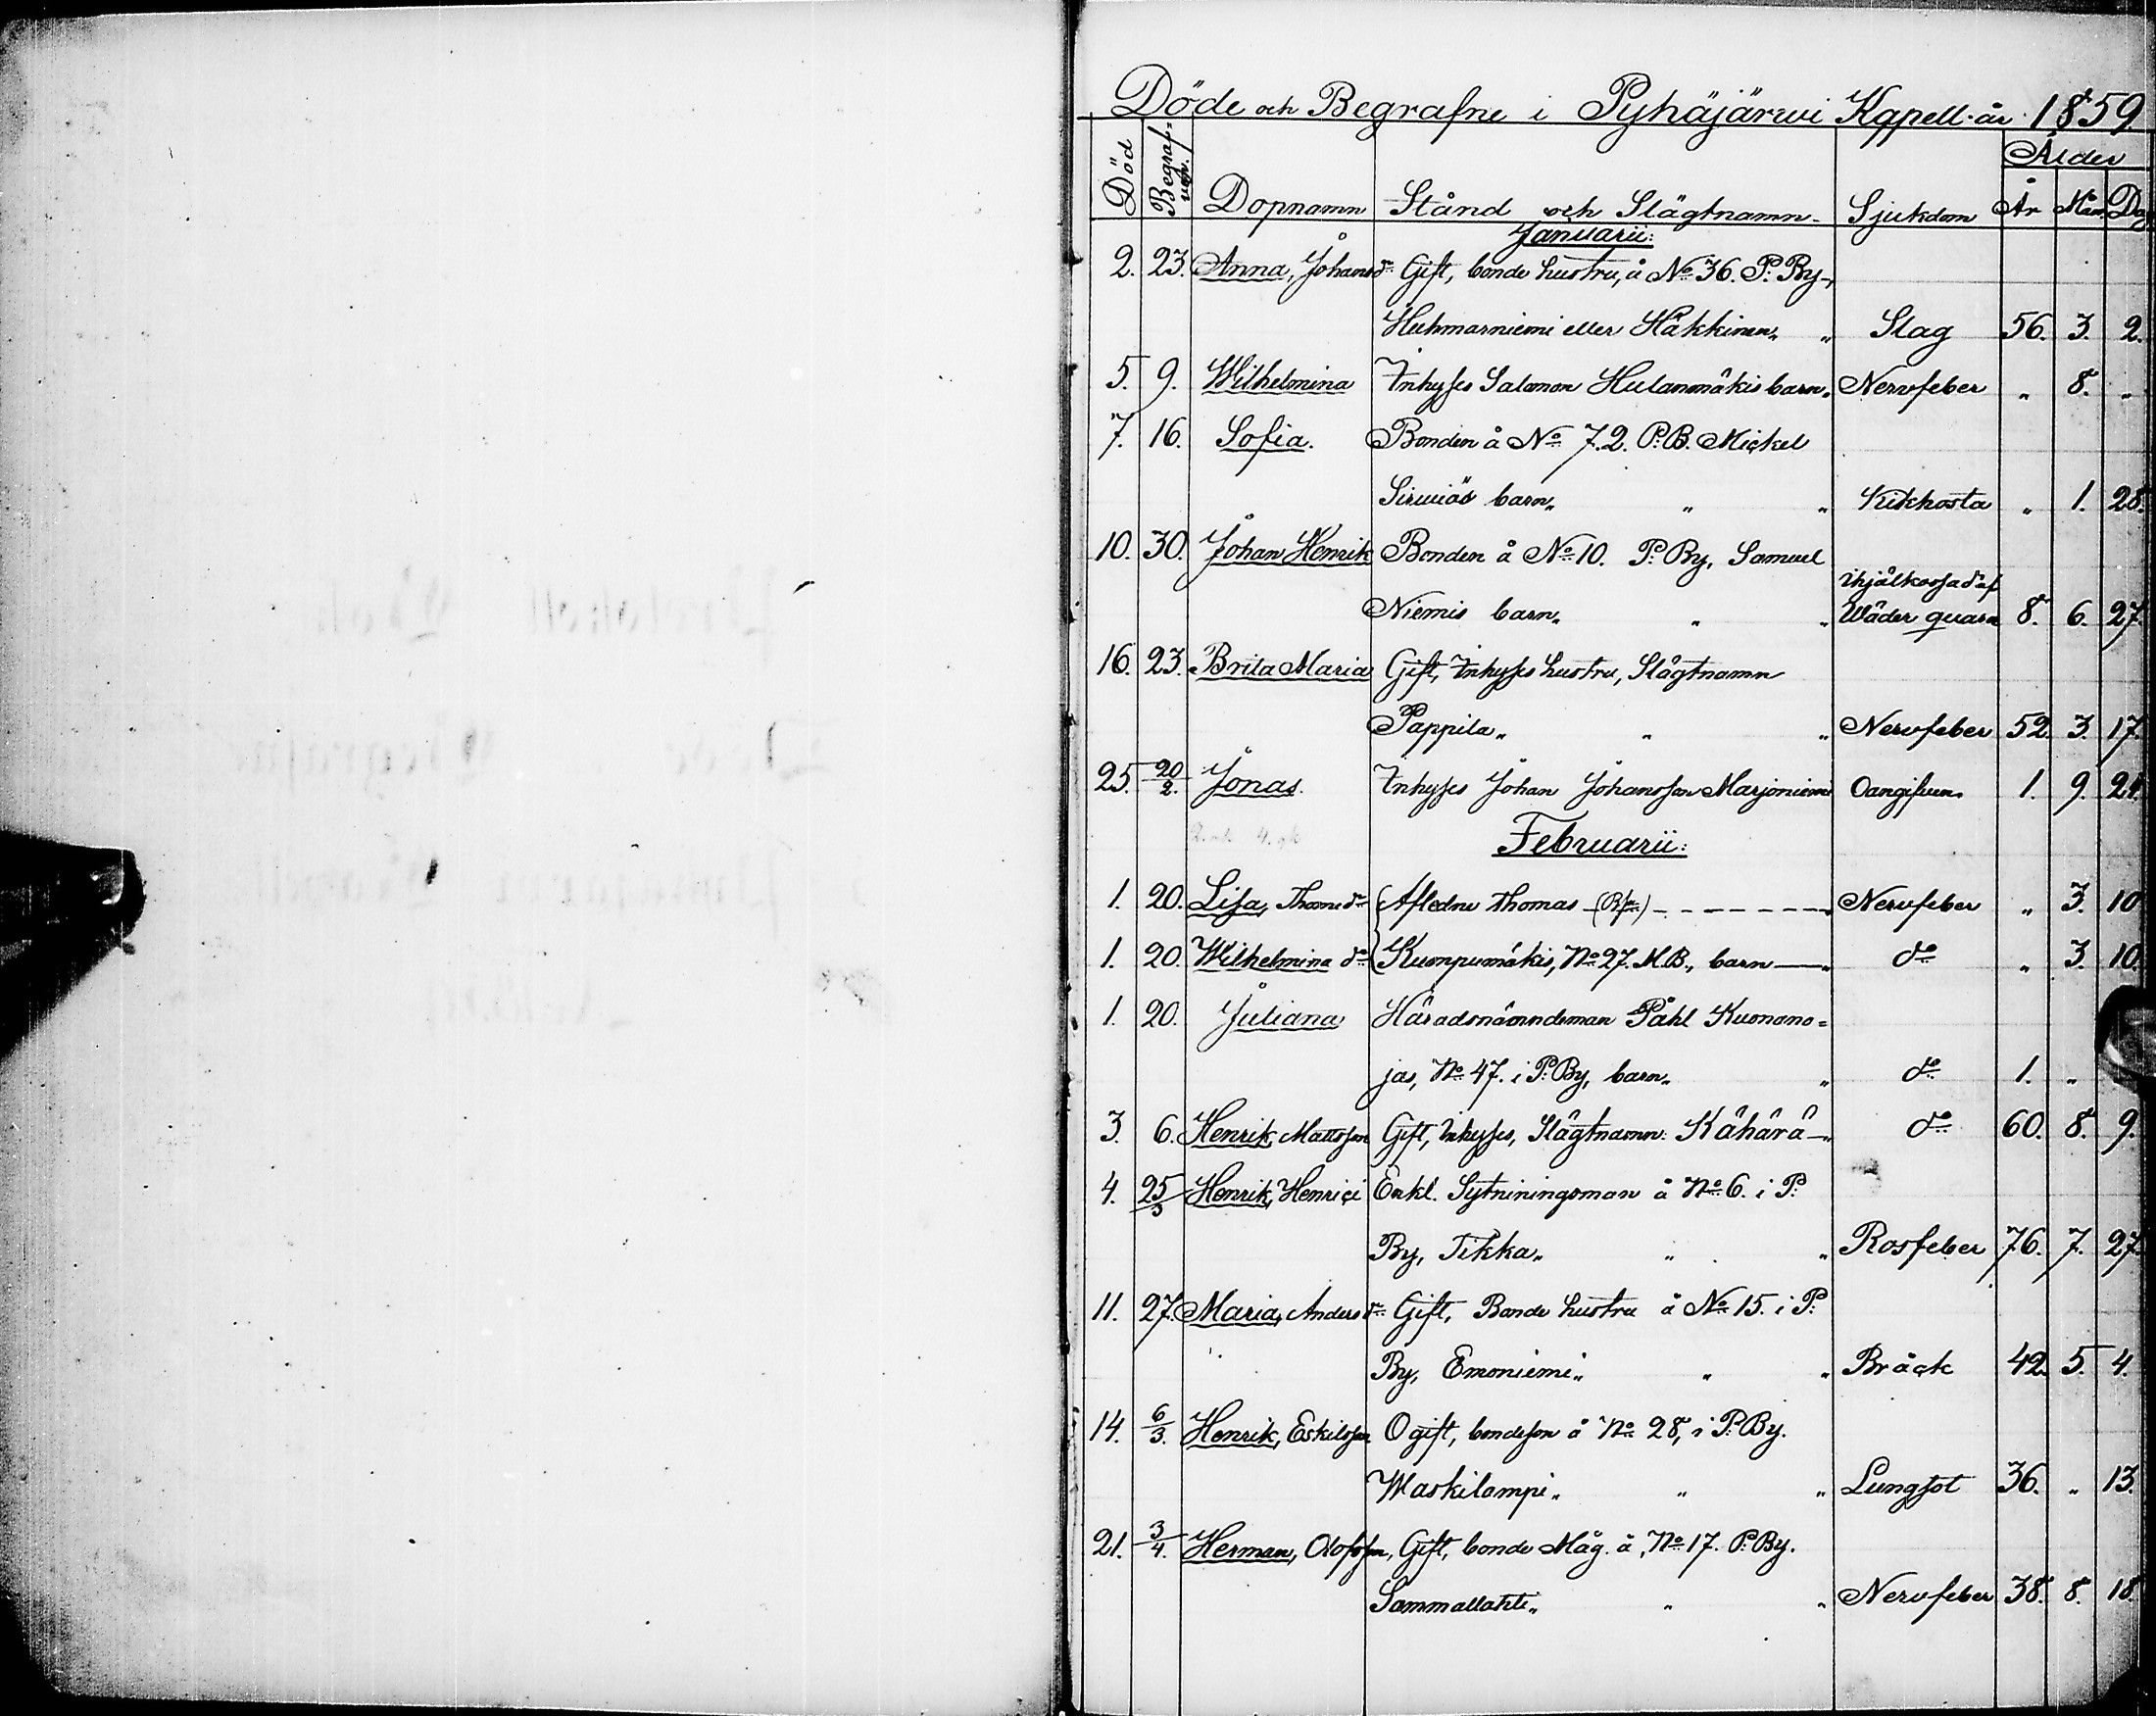 Döde och Begrafne i Pyhäjärwi Kapell år 1859.
Död Begrafven. Dopnamn Stånd och Slägtnamn Sjukdom Ålder År Mån. Dag
Januarii:
2. 23. Anna, Johansdr Gift, bonde hustru, å No 36. P. By
Huhmarniemi eller Häkkinen „ „ Slag 56. 3. 2.
5. 9. Wilhelmina Inhyses Salomon Hulanmäkis barn „ Nervfeber „ 8. „
7. 16. Sofia. Bonden å No 7.2. P. B. Mickel
Sirwiös barn „ „ „ Kikhosta „ 1. 28.
10. 30. Johan Henrik Bonden å No 10. P. By, Samuel
ihjälkossad af
Niemis barn „ „ „ Wäder quarn 8. 6. 27.
16. 23. Brita Maria Gift, Inhyses hustru, Slägtnamn
Pappila „ „ „ Nervfeber 52. 3. 17.
25. 20/2. Jonas. Inhyses Johan Johansson Marjoniemi Oangifven 1. 9. 24.
Februarii:
1. 20. Lisa, Thomedr Afledne Thomas Nervfeber „ 3. 10
1. 20. Wilhelmina do Kumpumäkis, No 27. M. B., barn — do „ 3. 10.
1. 20. Juliana Häradsnämndeman Påhl Kuonano=
jas, No 47. i P. By, barn „ „ do 1. „
3. 6. Henrik, Mattsson Gift, Inhyses, Slägtnamn: Kähärä — do 60. 8. 9.
4. 25/3 Henrik, Henrici Enkl. Sytniningsman å No 6. i P.
By, Tikka „ „ „ Rosfeber 76. 7. 27.
11. 27. Maria, Andersdr Gift, Bonde hustru å No 15. i P.
By, Emoniemi „ „ „ Bråck 42. 5. 4.
14. 6/3. Henrik, Eskilsson Ogift, bondeson å No 28, i P. By.
Waskilampi „ „ „ Lungsot 36. „ 13.
21. 3/4. Herman, Olofsson, Gift, bonde Måg å, No 17. P. By.
Sammallahti „ „ „ Nervfeber 38. 8. 18.